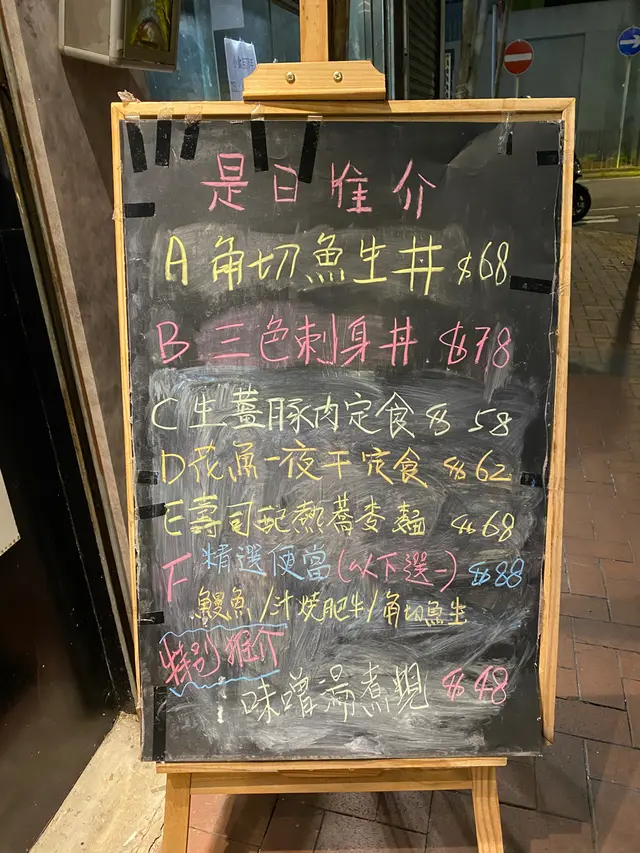 是日推介
A 角切魚生丼 $68
B 三色刺身丼 $78
C 生薑豚肉定食 $58
D 花魚一夜干定食 $62
E 壽司配熱蕎麥麵 $68
F 精選便當(以下選一) $88
鰻魚/汁燒肥牛/角切魚生
特別推介
味噌湯煮蜆 $48